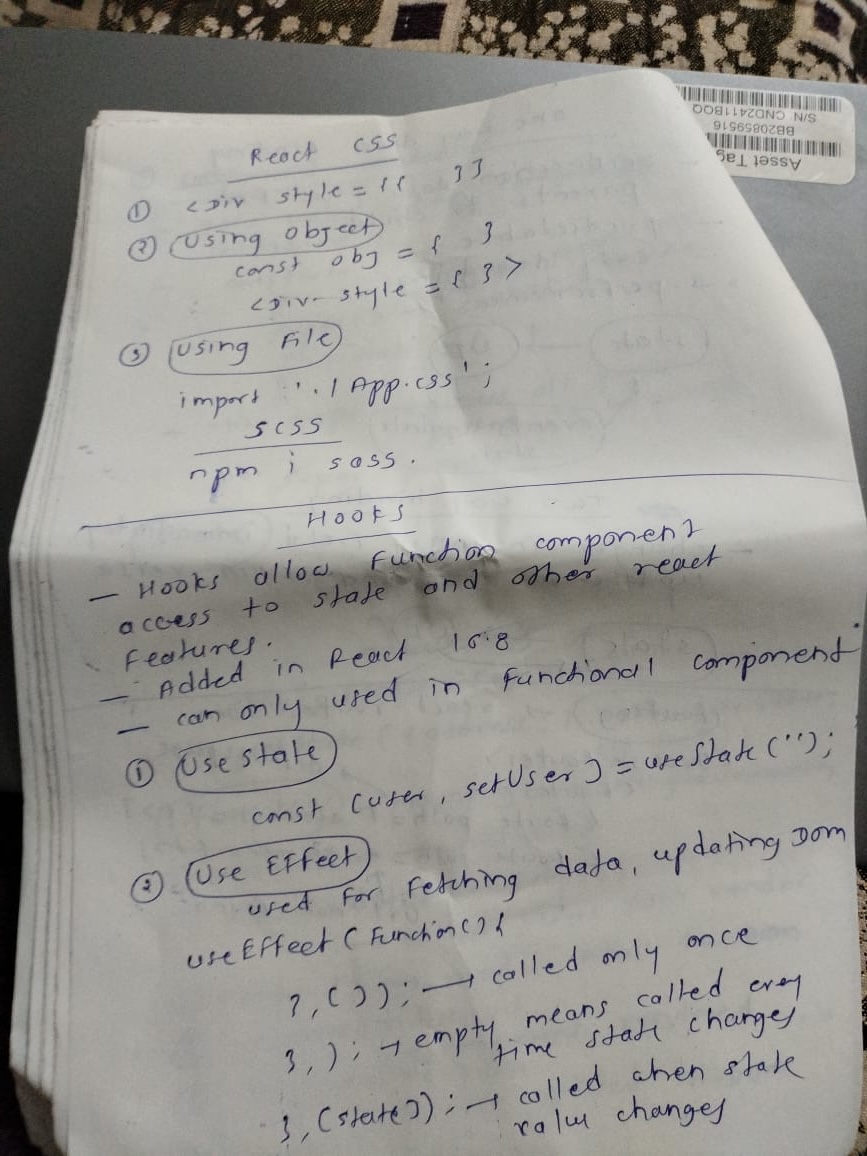 S/N: CND2411BQQ
BB20859516
Asset Tag
React CSS
① <Div style={{ }}
② Using Object
const obj = { }
<Div style={ }>
③ Using File
import './App.css';
SCSS
npm i sass.
Hooks
- Hooks allow Function component
access to state and other react
Features.
- Added in React 16.8
- can only used in Functional component.
① Use State
const [user, setUser] = useState('');
② Use Effect
used for Fetching data, updating Dom
useEffect(Function(){
}, []); → called only once
}, ); → empty means called every
time state changes
}, [state]); → called when state
value changes